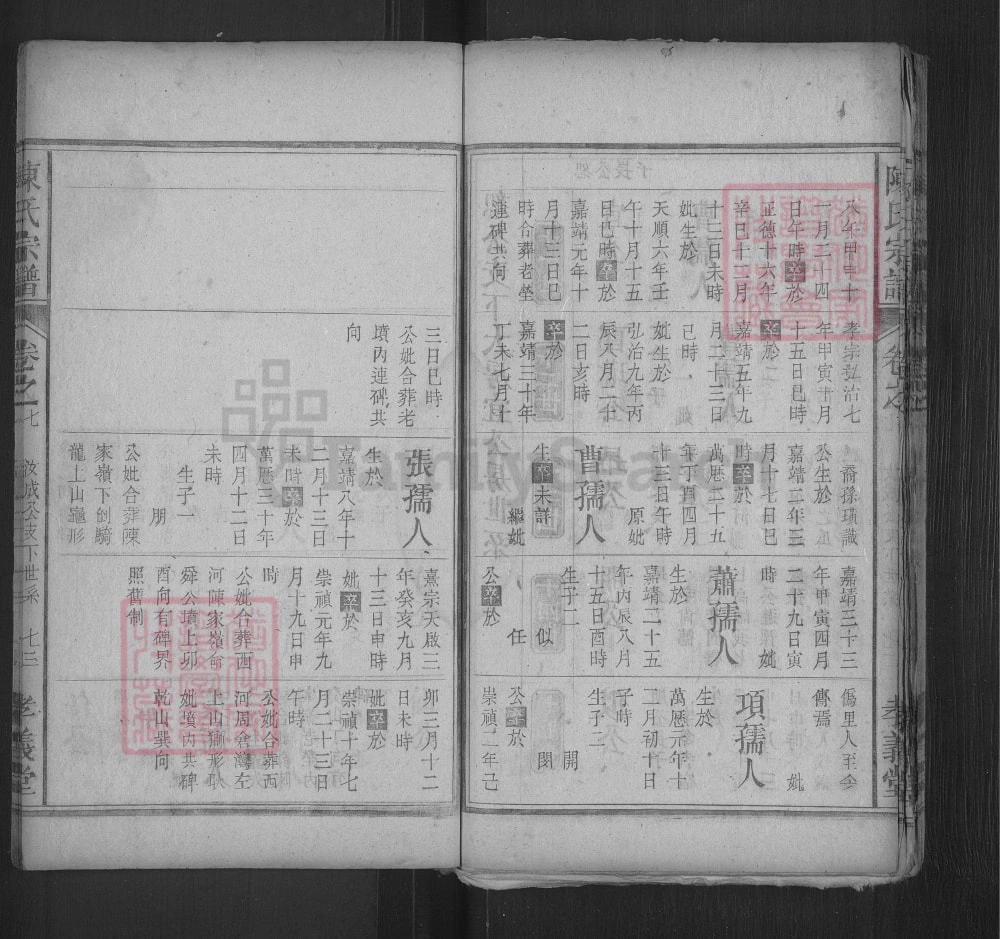 陳氏宗譜
卷之
孝義堂
一月二十四
日午時卒於
正德十六年
辛巳十二月
十三日未時
妣生於
天順六年壬
午十月十五
日巳時卒於
嘉靖元年十
月十三日巳
時合葬老塋
連碑共向
孝宗弘治七
年甲寅十月
十五日巳時
卒於
嘉靖五年九
月二十三日
巳時
妣生於
弘治九年丙
辰八月二十
二日亥時
卒於
嘉靖三十年
丁未七月十
裔孫瓆識
公生於
嘉靖二年三
月十七日巳
時卒於
萬歷二十五
年丁酉四月
十三日午時
原妣
曹孺人
生卒未詳
繼妣
嘉靖三十三
年甲寅四月
二十九日寅
時 妣
蕭孺人
生於
嘉靖二十五
年丙辰八月
十五日酉時
生子二
似
任
公卒於
僞里人至今
傳焉
妣
項孺人
生於
萬歷元年十
二月初十日
子時
生子二
開
閔
公卒於
崇禎二年己
三日巳時
公妣合葬老
墳內連碑共
向
張孺人
生於
嘉靖八年十
二月十三日
未時卒於
萬歷三十年
四月十二日
未時
生子一
朋
公妣合葬陳
家嶺下刨騎
龍上山龜形
熹宗天啟三
年癸亥九月
十三日申時
妣卒於
崇禎元年九
月十九日申
時
公妣合葬西
河陳家嶺命
舜公墳上卯
酉向有碑界
照舊制
卯三月十二
日未時
妣卒於
崇禎十年七
月二十三日
午時
公妣合葬西
河周倉灣左
上山獅形臥
妣墳內共碑
乾山巽向
陳氏宗譜
卷之七
汝成公支下世系
七三
孝義堂